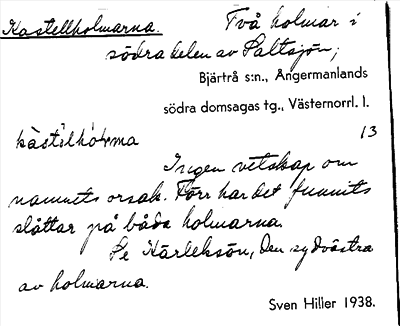 Kastellholmarna. Två holmar i
södra delen av Saltsjön;
Bjärtrå s:n., Ångermanlands
södra domsagas tg., Västernorrl. l.
13
kàstélhòḷma
Ingen vetskap om
namnets orsak. Förr har det funnits
slåttar på båda holmarna.
Se Kärleksön, den sydvästra
av holmarna.
Sven Hiller 1938.